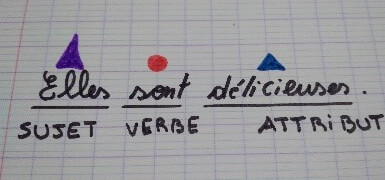 Elles sont délicieuses.
SUJET VERBE ATTRIBUT